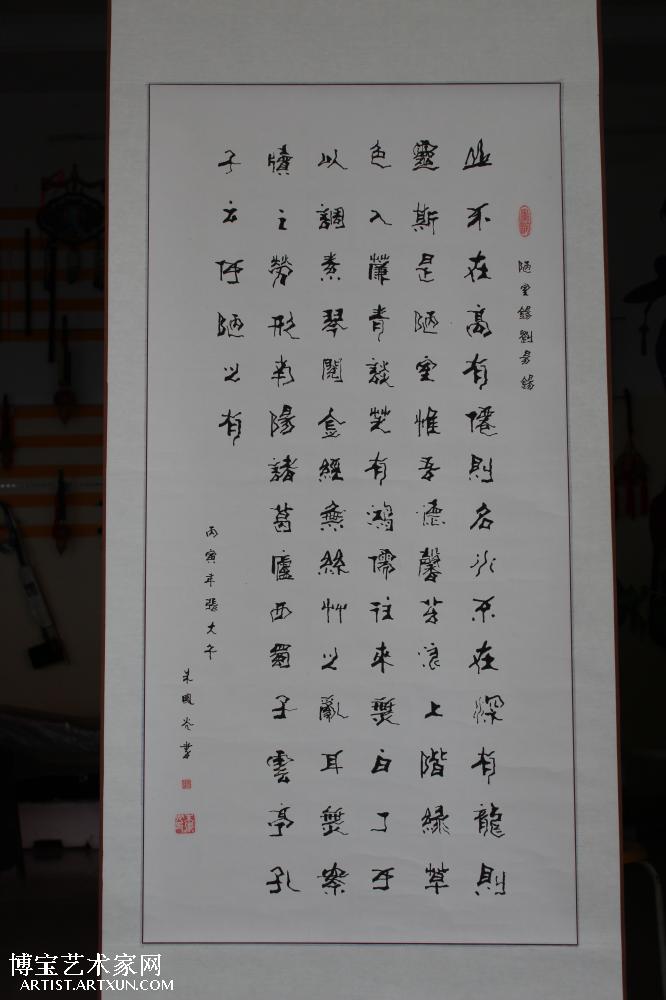 陋室劉禹
山不在高有僊則名水不在深有龍則
靈斯是陋室惟吾德馨苔痕上階綠草
色入簾青談笑有鴻儒往來無白丁可
以調素琴閱金經無絲竹之亂耳無案
牘之勞形南陽諸葛廬西蜀子雲亭孔
子云何陋之有
丙寅年
博宝艺术家网
ARTIST.ARTXUN.COM